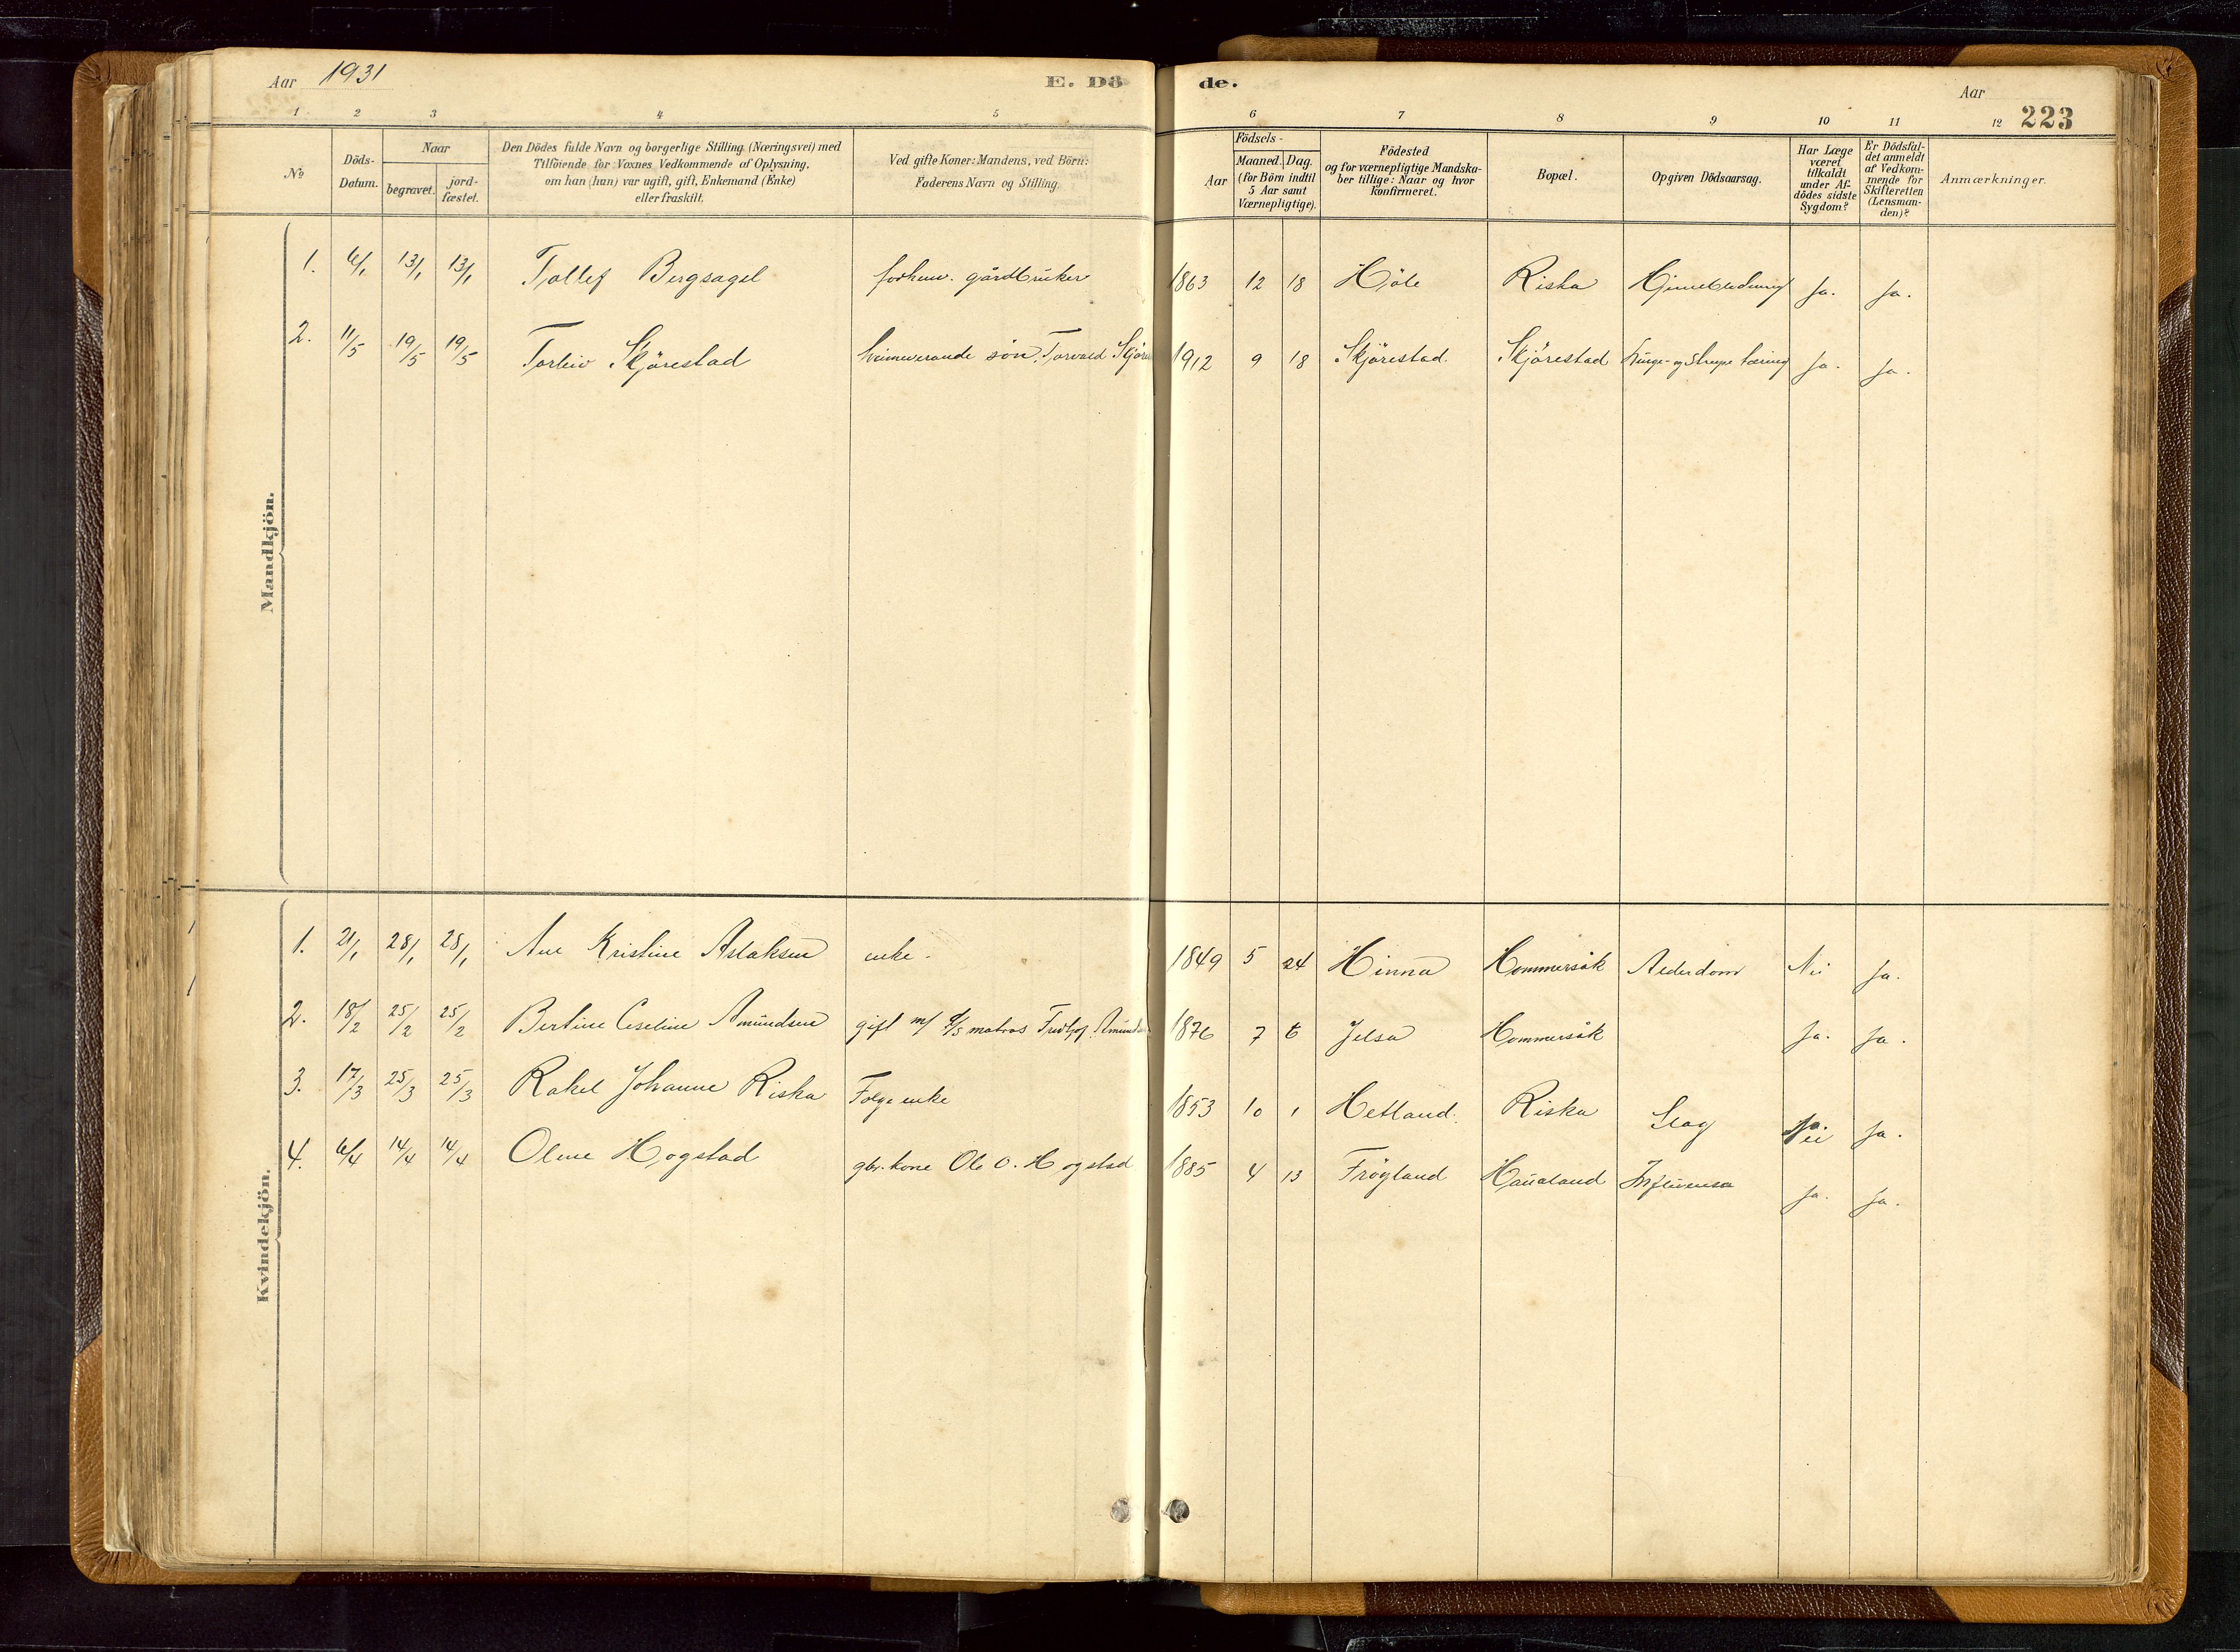 Aar 1931
E. Dö
de.
Aar
223
1 2 3 4 5 6 7 8 9 10 11 12
No
Döds-
Datum.
Naar
begravet.
jord-
fæstet.
Den Dödes fulde Navn og borgerlige Stilling (Næringsvei) med
Tilföiende for Voxnes Vedkommende af Oplysning,
om han (hun) var ugift, gift, Enkemand (Enke)
eller fraskilt.
Ved gifte Koner: Mandens, ved Börn:
Faderens Navn og Stilling.
Födsels-
Aar
Maaned. Dag.
(for Börn indtil
5 Aar samt
Værnepligtige).
Födested
og for værnepligtige Mandska-
ber tillige: Naar og hvor
konfirmeret.
Bopæl.
Opgiven Dödsaarsag.
Har Læge
været
tilkaldt
under Af-
dödes sidste
Sygdom?
Er Dödsfal-
det anmeldt
af Vedkom-
mende for
Skifteretten
(Lensman-
den)?
Anmærkninger.
Mandkjön.
1. 6/1 13/1 13/1 Tollef Bergsagel forhenv. gårdbruker 1863 12 18 Höle Riska Hjernebledning ja. ja.
2. 11/5 19/5 19/5 Torleiv Skjörestad heimeverande sön, Torvald Skjöre 1912 9 18 Skjörestad. Skjörestad Lunge- og strupe tæring ja. ja.
Kvindekjön.
1. 21/1 28/1 28/1 Ane Kristine Aslaksen enke. 1849 5 24 Hinna Hommersåk Alderdom Nei ja.
2. 18/2 25/2 25/2 Bertine Amundsen gift m/ d/s matros Amund 1876 7 6 Jelsa Hommersåk ja. ja.
3. 17/3 25/3 25/3 Rakel Johanne Riska Folge enke 1853 10 1 Hetland. Riska Slag ja. ja.
4. 6/4 14/4 14/4 Oline Hogstad gbr. kone Ole O. Hogstad 1885 4 13 Frögland Haualand Influensa ja. ja.